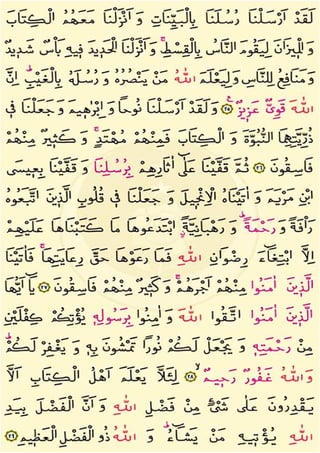 لَقَدْ اَرْسَلْنَا رُسُلَنَا بِالْبَيِّنَاتِ وَ اَنْزَلْنَا مَعَهُمُ الْكِتَابَ
وَ الْمِيزَانَ لِيَقُومَ النَّاسُ بِالْقِسْطِۚ وَ اَنْزَلْنَا الْحَدِيدَ فِيهِ بَأْسٌ شَدِيدٌ
وَ مَنَافِعُ لِلنَّاسِ وَ لِيَعْلَمَ اللّٰهُ مَنْ يَنْصُرُهُ وَ رُسُلَهُ بِالْغَيْبِۜ اِنَّ
اللّٰهَ قَوِىٌّ عَزِيزٌ ﴿٢٥﴾ وَ لَقَدْ اَرْسَلْنَا نُوحًا وَ اِبْرٰهِيمَ وَ جَعَلْنَا فِى
ذُرِّيَّتِهِمَا النُّبُوَّةَ وَ الْكِتَابَ فَمِنْهُمْ مُهْتَدٍۚ وَ كَثِيرٌ مِنْهُمْ
فَاسِقُونَ ﴿٢٦﴾ ثُمَّ قَفَّيْنَا عَلٰٓى اٰثَارِهِمْ بِرُسُلِنَا وَ قَفَّيْنَا بِعِيسَى
ابْنِ مَرْيَمَ وَ اٰتَيْنَاهُ الْاِنْجِيلَ وَ جَعَلْنَا فِى قُلُوبِ الَّذِينَ اتَّبَعُوهُ
رَاْفَةً وَ رَحْمَةًۜ وَ رَهْبَانِيَّةًۨ ابْتَدَعُوهَا مَا كَتَبْنَاهَا عَلَيْهِمْ
اِلَّا ابْتِغَٓاءَ رِضْوَانِ اللّٰهِ فَمَا رَعَوْهَا حَقَّ رِعَايَتِهَاۚ فَاٰتَيْنَا
الَّذِينَ اٰمَنُوا مِنْهُمْ اَجْرَهُمْۚ وَ كَثِيرٌ مِنْهُمْ فَاسِقُونَ ﴿٢٧﴾ يَٓا اَيُّهَا
الَّذِينَ اٰمَنُوا اتَّقُوا اللّٰهَ وَ اٰمِنُوا بِرَسُولِهِ يُؤْتِكُمْ كِفْلَيْنِ
مِنْ رَحْمَتِهِ وَ يَجْعَلْ لَكُمْ نُورًا تَمْشُونَ بِهِ وَ يَغْفِرْ لَكُمْۜ
وَ اللّٰهُ غَفُورٌ رَحِيمٌۙ ﴿٢٨﴾ لِئَلَّا يَعْلَمَ اَهْلُ الْكِتَابِ اَلَّا
يَقْدِرُونَ عَلٰى شَىْءٍ مِنْ فَضْلِ اللّٰهِ وَ اَنَّ الْفَضْلَ بِيَدِ
اللّٰهِ يُؤْتِيهِ مَنْ يَشَٓاءُۜ وَ اللّٰهُ ذُو الْفَضْلِ الْعَظِيمِ ﴿٢٩﴾